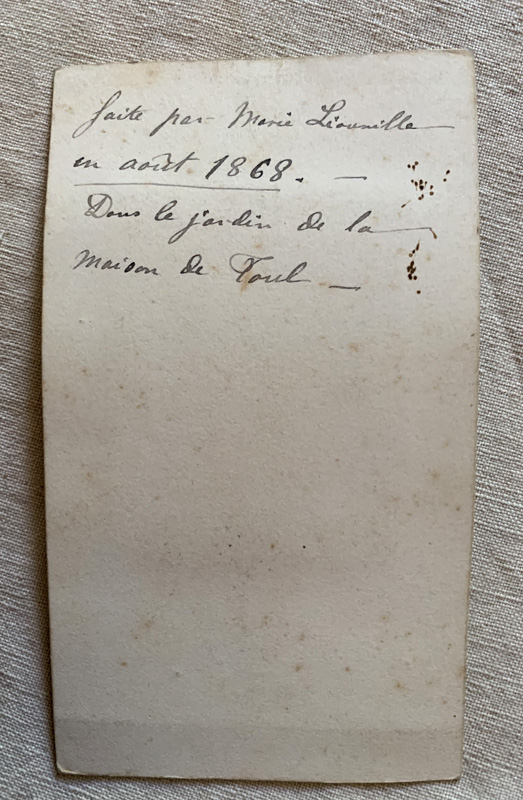 faite par Marie Liouville
en août 1868. —
Dans le jardin de la
maison de Toul —